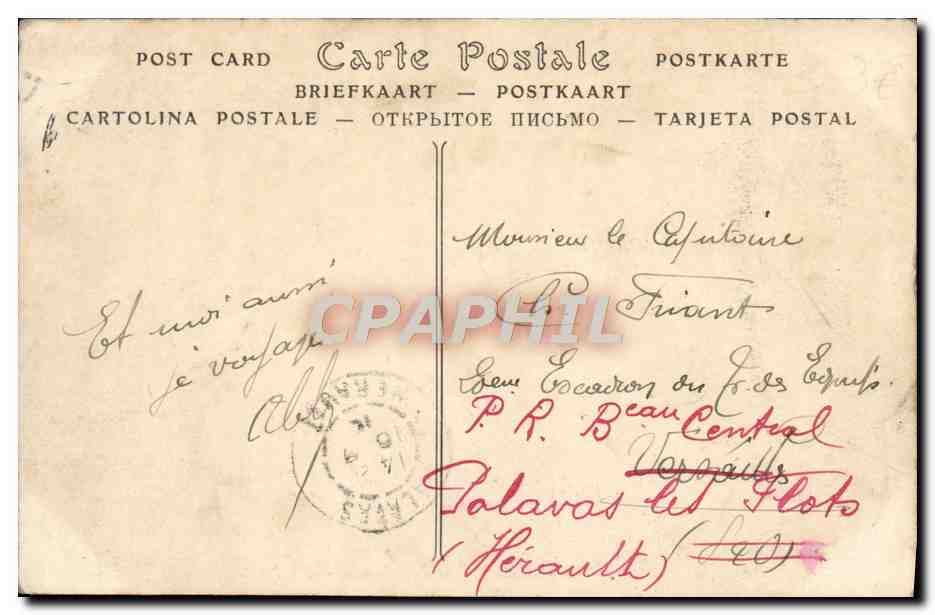 POST CARD Carte Postale POSTKARTE
BRIEFKAART — POSTKAART
CARTOLINA POSTALE — ОТКРЫТОЕ ПИСЬМО — TARJETA POSTAL
Et moi aussi
je voyage
Monsieur le Capitaine
Ch Friant
20eme Escadron du Tr. des Equip.
P. R. Beau Central
Versailles
Palavas les Flots
(Hérault) (S&O)
HERAULT
PALAVAS
CPARAMA CPAPHIL